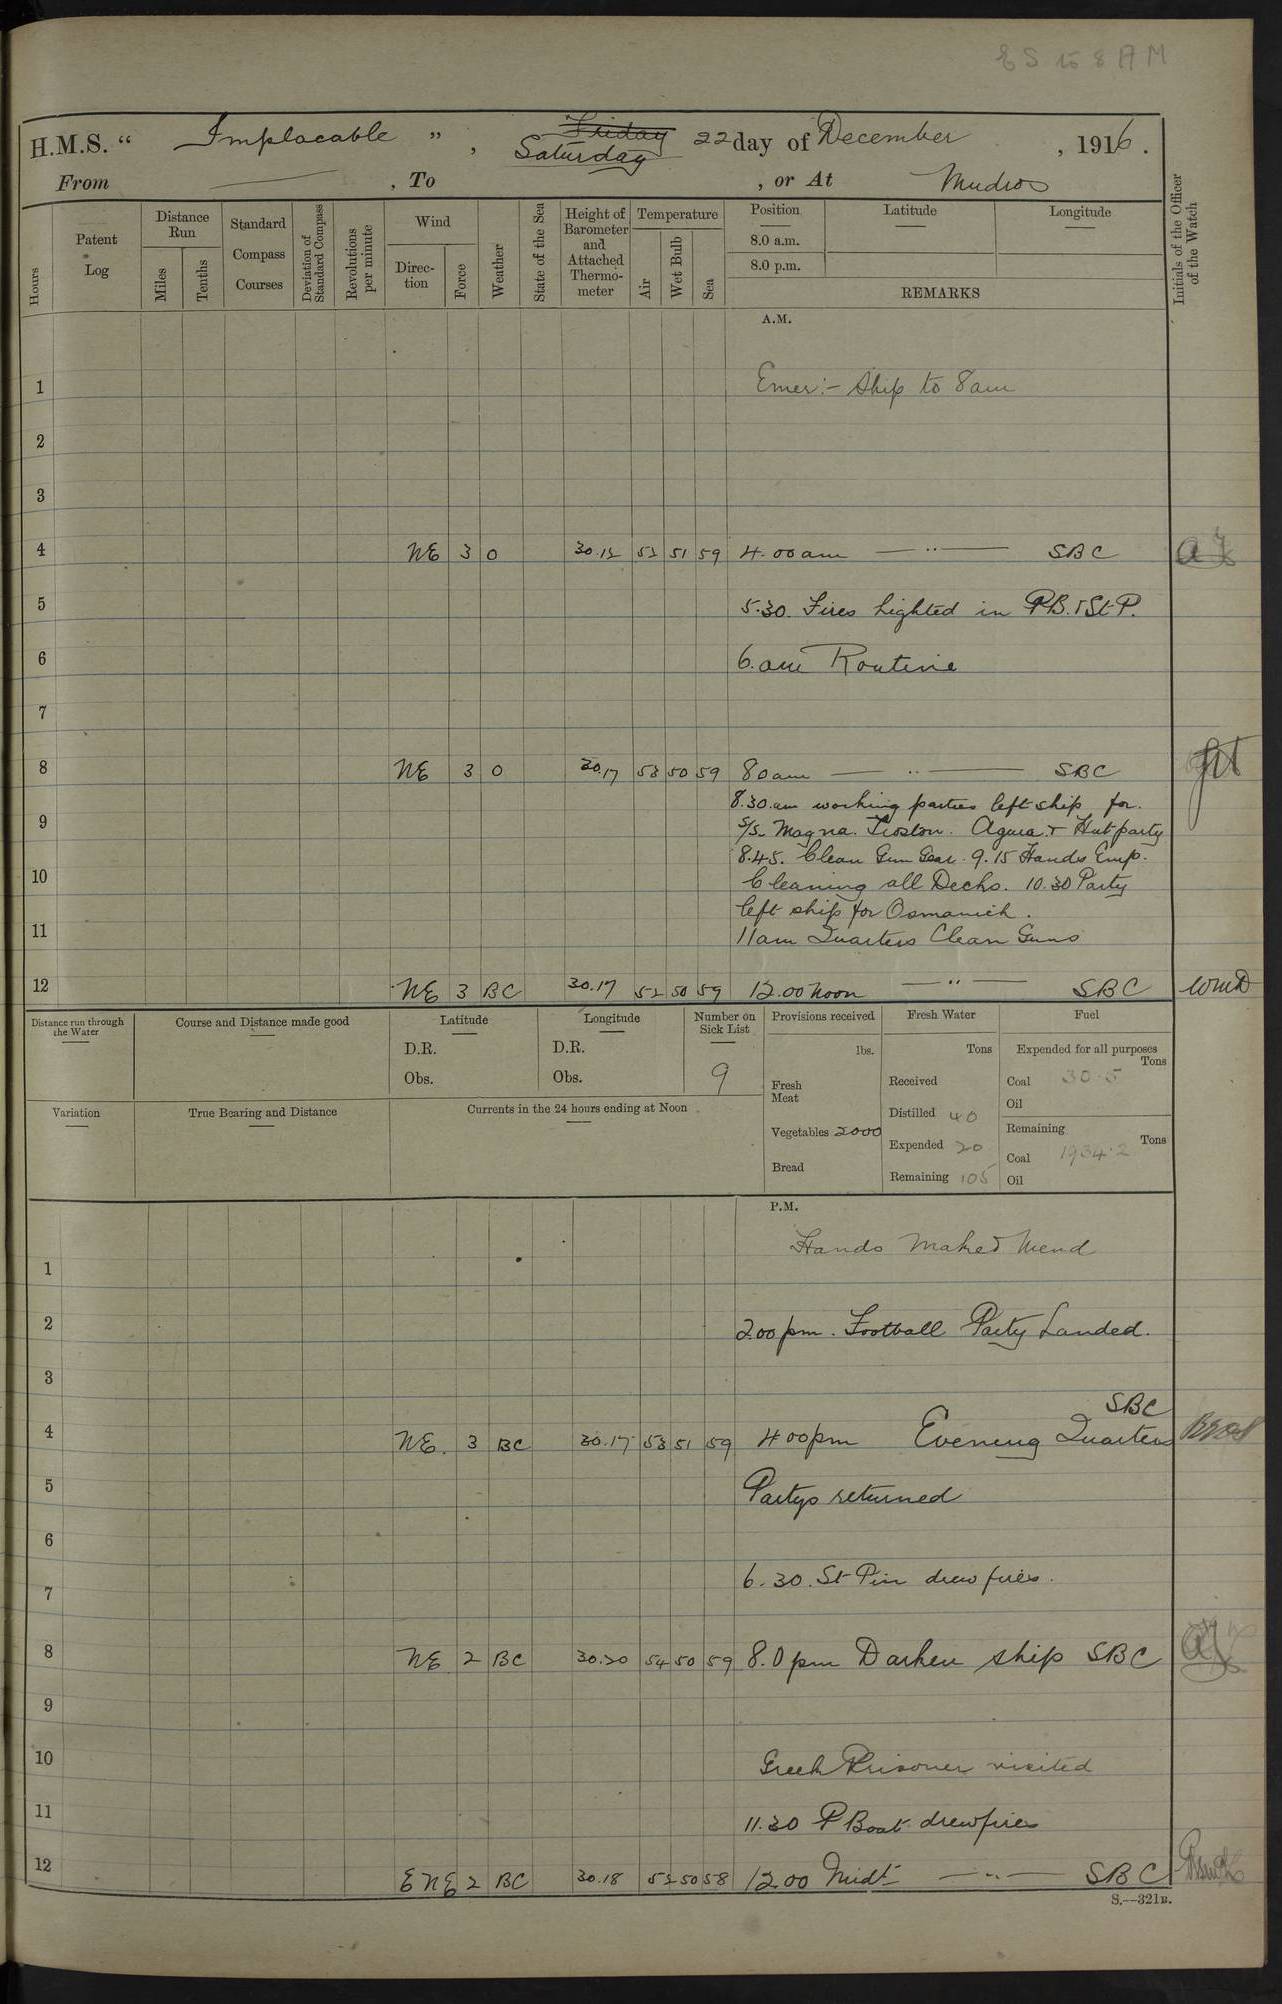 ES to 8 AM
H.M.S. " Implacable ", Friday Saturday 22 day of December, 1916.
From ———, To , or At Mudros
Hours
Patent Log
Distance Run
Miles
Tenths
Standard Compass Courses
Deviation of Standard Compass
Revolutions per minute
Wind
Direction
Force
Weather
State of the Sea
Height of Barometer and Attached Thermometer
Temperature
Air
Wet Bulb
Sea
Position
8.0 a.m.
8.0 p.m.
Latitude
Longitude
REMARKS
Initials of the Officer of the Watch
A.M.
1 Emer:- Ship to 8am
2
3
4 NE 3 O 30.15 53 51 59 4.00am — " — SBC
5 5.30. Fires lighted in PB. & St P.
6 6.am Routine
7
8 NE 3 O 30.17 53 50 59 8 0am — " — SBC
8.30.am working parties left ship for.
9 S/S. Magna. Troston. Agwa. & Hut party
8.45. Clean Gun Gear. 9.15 Hands Emp.
10 Cleaning all Decks. 10.30 Party
left ship for Osmanieh.
11 11am Quarters Clean Guns
12 NE 3 BC 30.17 52 50 59 12.00 Noon — " — SBC WMD
Distance run through the Water
Course and Distance made good
Latitude
D.R.
Obs.
Longitude
D.R.
Obs.
Number on Sick List
9
Provisions received
lbs.
Fresh Meat
Vegetables 2000
Bread
Fresh Water
Tons
Received
Distilled 40
Expended 20
Remaining 105
Fuel
Expended for all purposes
Tons
Coal 30.5
Oil
Remaining
Tons
Coal 1934.2
Oil
Variation
True Bearing and Distance
Currents in the 24 hours ending at Noon
P.M.
Hands Make & Mend
1
2 2.00pm. Football Party Landed.
3
SBC
4 NE. 3 BC 30.17 53 51 59 4 00pm Evening Quarters
5 Partys returned
6
6.30. St Pin drew fires.
7
8 NE 2 BC 30.20 54 50 59 8.0pm Darken ship SBC
9
10 Greek Prisoner visited
11 11.30 P Boat drew fires
12 ENE 2 BC 30.18 52 50 58 12.00 Midt — " — SBC
S.—321B.